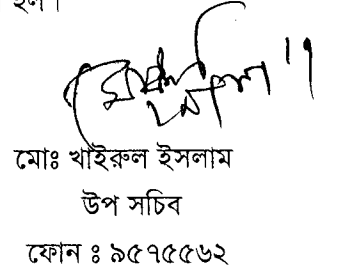 হল।
মোঃ খাইরুল ইসলাম
উপ সচিব
ফোন ঃ ৯৫৭৫৫৬২